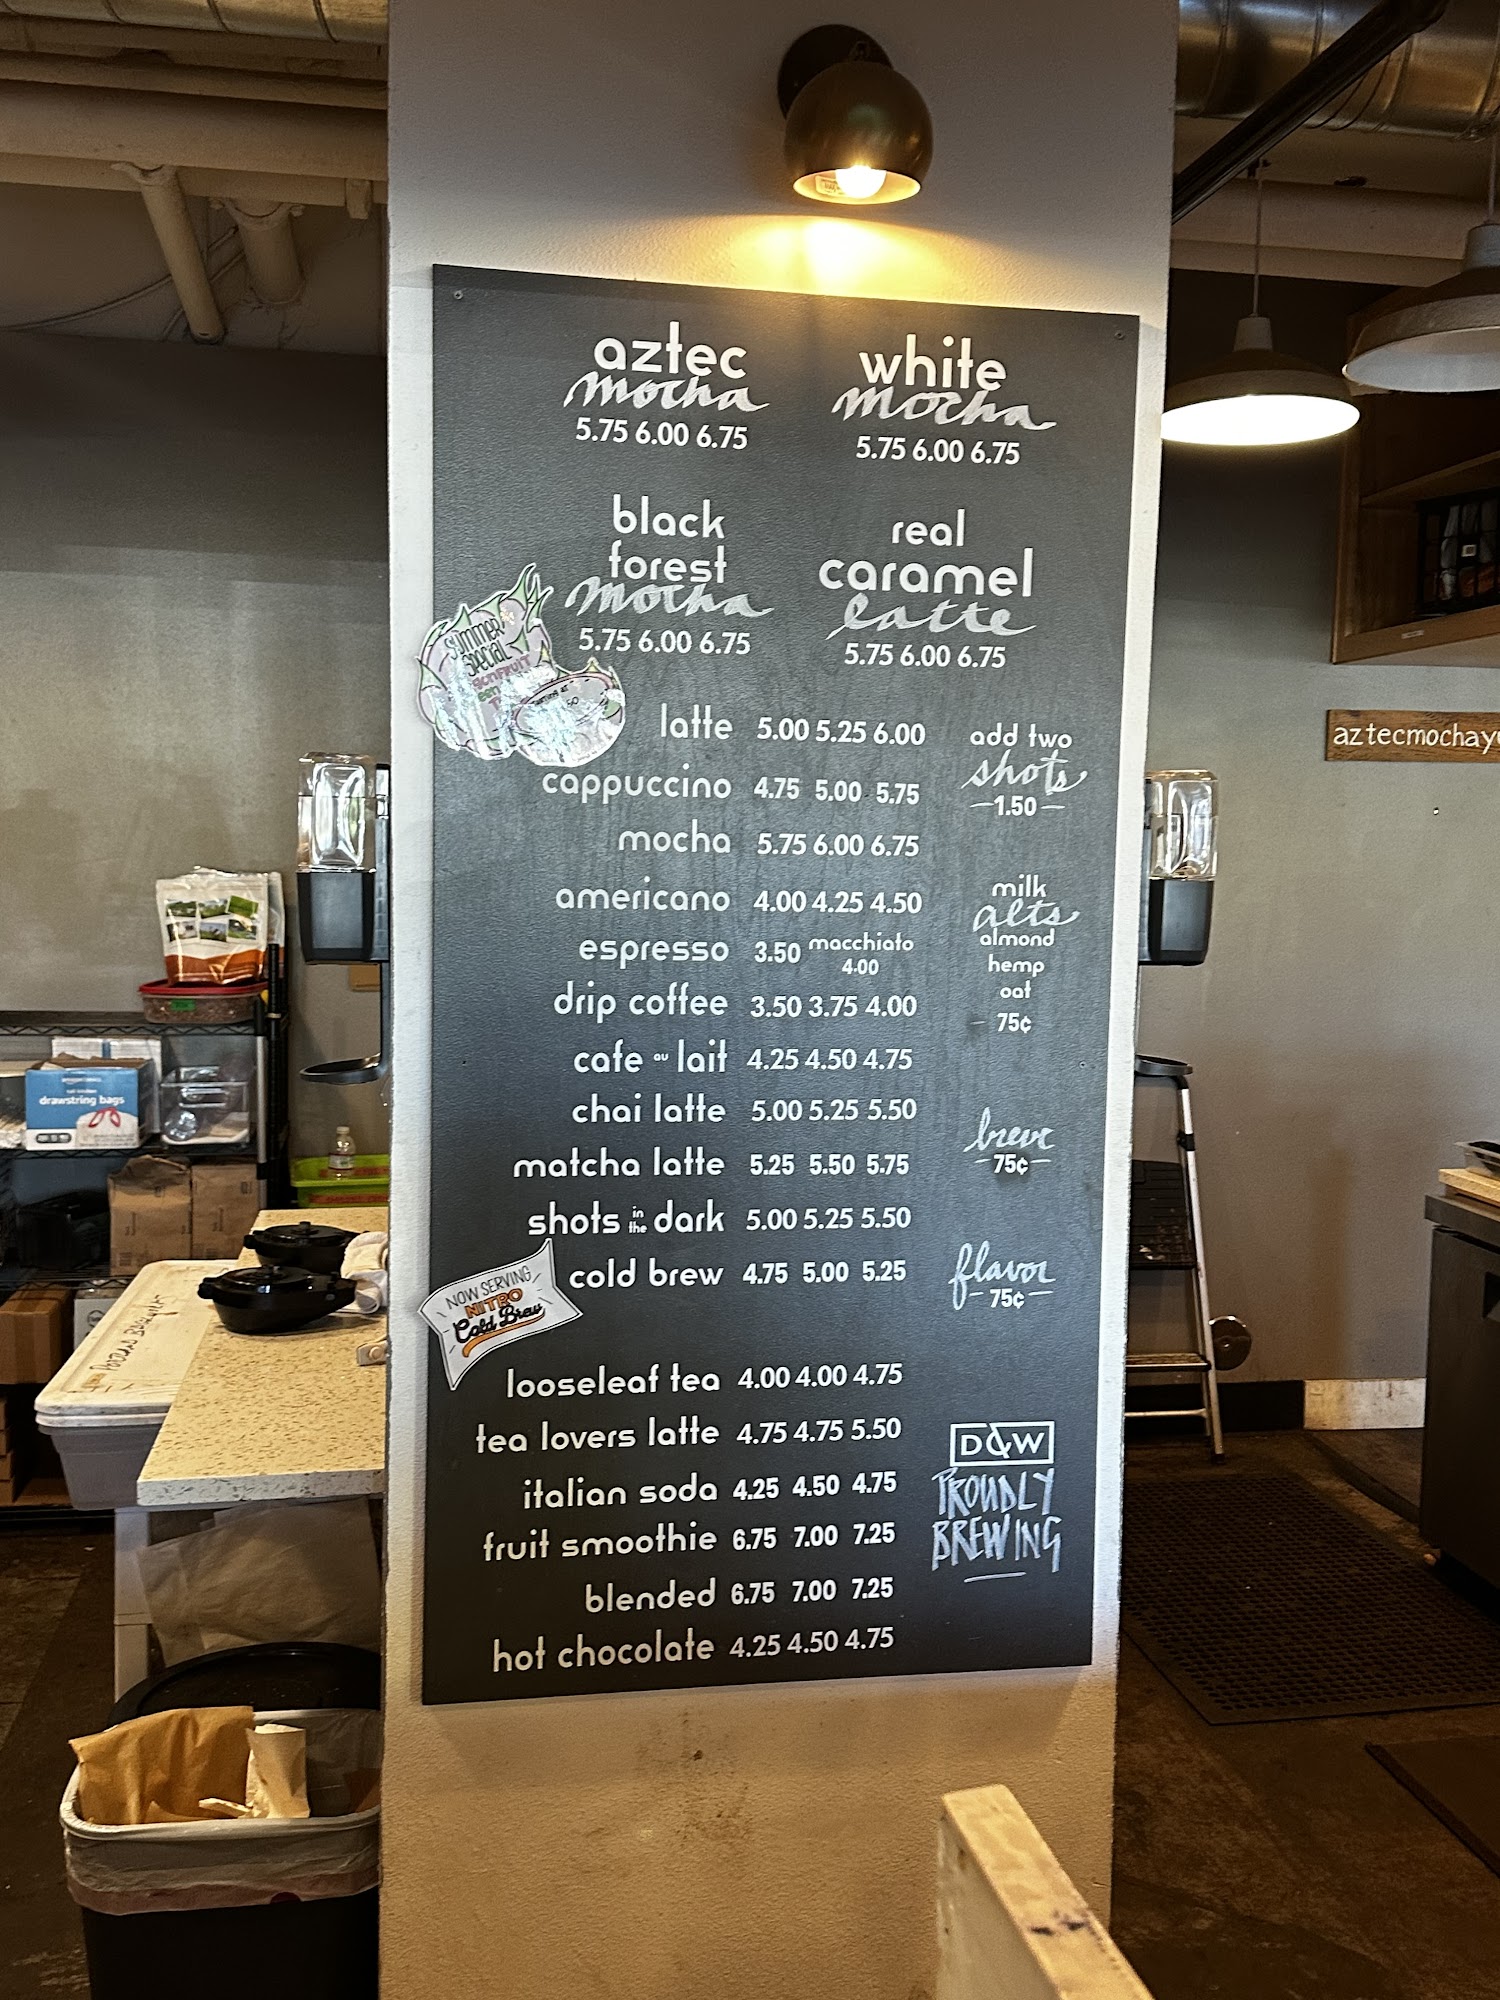 aztec
mocha
5.75 6.00 6.75
white
mocha
5.75 6.00 6.75
black
forest
mocha
5.75 6.00 6.75
real
caramel
latte
5.75 6.00 6.75
SUMMER
SPECIAL
latte 5.00 5.25 6.00
cappuccino 4.75 5.00 5.75
mocha 5.75 6.00 6.75
americano 4.00 4.25 4.50
espresso 3.50 macchiato
4.00
drip coffee 3.50 3.75 4.00
cafe au lait 4.25 4.50 4.75
chai latte 5.00 5.25 5.50
matcha latte 5.25 5.50 5.75
shots in the dark 5.00 5.25 5.50
cold brew 4.75 5.00 5.25
NOW SERVING
NITRO
Cold Brew
looseleaf tea 4.00 4.00 4.75
tea lovers latte 4.75 4.75 5.50
italian soda 4.25 4.50 4.75
fruit smoothie 6.75 7.00 7.25
blended 6.75 7.00 7.25
hot chocolate 4.25 4.50 4.75
add two
shots
-1.50-
milk
alts
almond
hemp
oat
- 75¢
breve
-75¢-
flavor
-75¢-
D&W
PROUDLY
BREWING
aztecmochay
drawstring bags